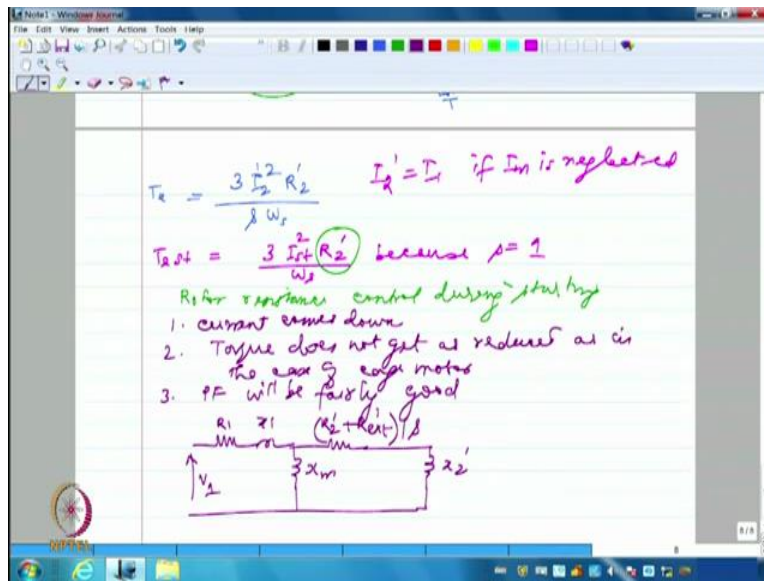 Note1 - Windows Journal
File Edit View Insert Actions Tools Help
B I
T
Te = 3 I2'^2 R2' / s ωs
I2' = I1 if Im is neglected
Te st = 3 Ist^2 R2' / ωs because s = 1
Rotor resistance control during starting
1. current comes down
2. Torque does not get as reduced as in
the case of cage motor
3. PF will be fairly good
R1 x1 (R2' + Rext')/s
V1 xm x2'
NPTEL
8/8
8